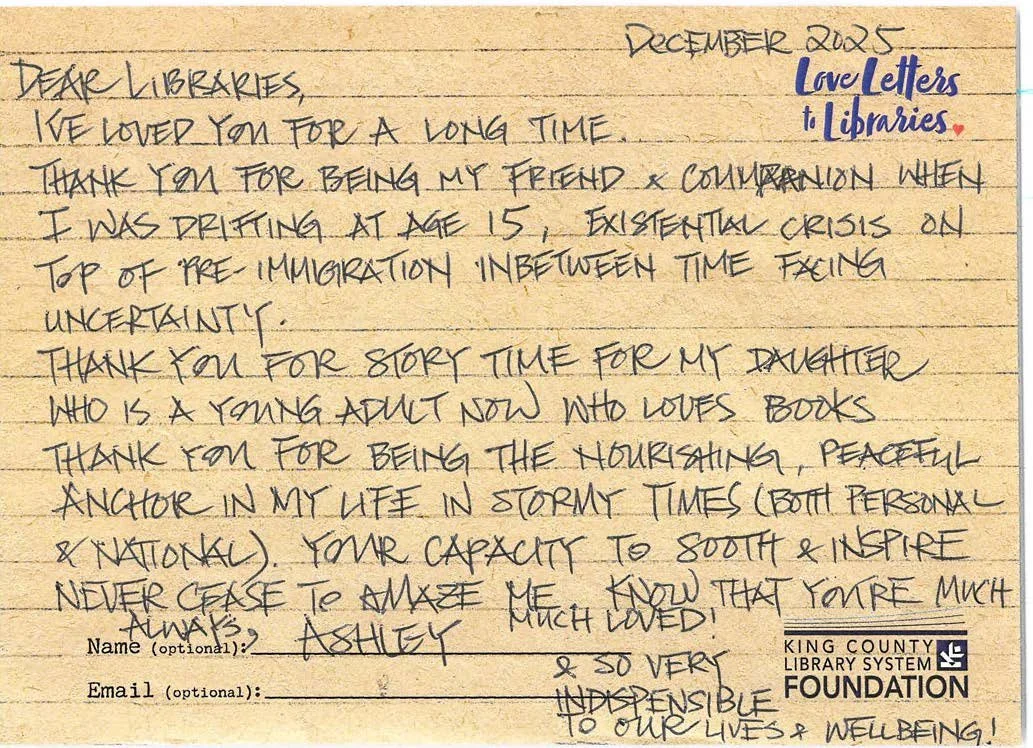 DECEMBER 2025
Love Letters
to Libraries
DEAR LIBRARIES,
I'VE LOVED YOU FOR A LONG TIME.
THANK YOU FOR BEING MY FRIEND & COMPANION WHEN
I WAS DRIFTING AT AGE 15, EXISTENTIAL CRISIS ON
TOP OF PRE-IMMIGRATION INBETWEEN TIME FACING
UNCERTAINTY.
THANK YOU FOR STORY TIME FOR MY DAUGHTER
WHO IS A YOUNG ADULT NOW WHO LOVES BOOKS
THANK YOU FOR BEING THE NOURISHING, PEACEFUL
ANCHOR IN MY LIFE IN STORMY TIMES (BOTH PERSONAL
& NATIONAL). YOUR CAPACITY TO SOOTH & INSPIRE
NEVER CEASE TO AMAZE ME. KNOW THAT YOU'RE MUCH
MUCH LOVED!
ALWAYS,
Name (optional): ASHLEY
& SO VERY
INDISPENSIBLE
TO OUR LIVES & WELLBEING!
Email (optional):
KING COUNTY
LIBRARY SYSTEM
FOUNDATION